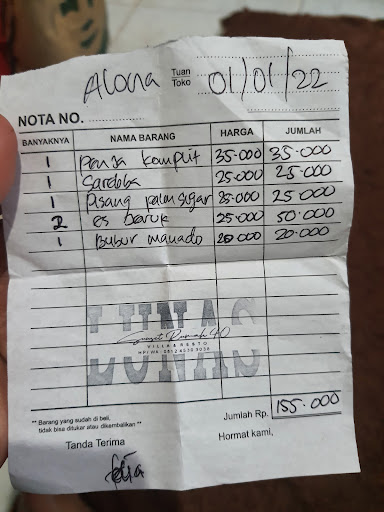 Alona Tuan Toko 01/01/22
NOTA NO.
BANYAKNYA NAMA BARANG HARGA JUMLAH
1 35.000 35.000
1 25.000 25.000
1 Pisang palm sugar 25.000 25.000
2 es baruk 25.000 50.000
1 Bubur manado 20.000 20.000
LUNAS
Sunset Rumah 40
VILLA & RESTO
Jumlah Rp. 155.000
** Barang yang sudah di beli,
tidak bisa ditukar atau dikembalikan **
Tanda Terima
Hormat kami,